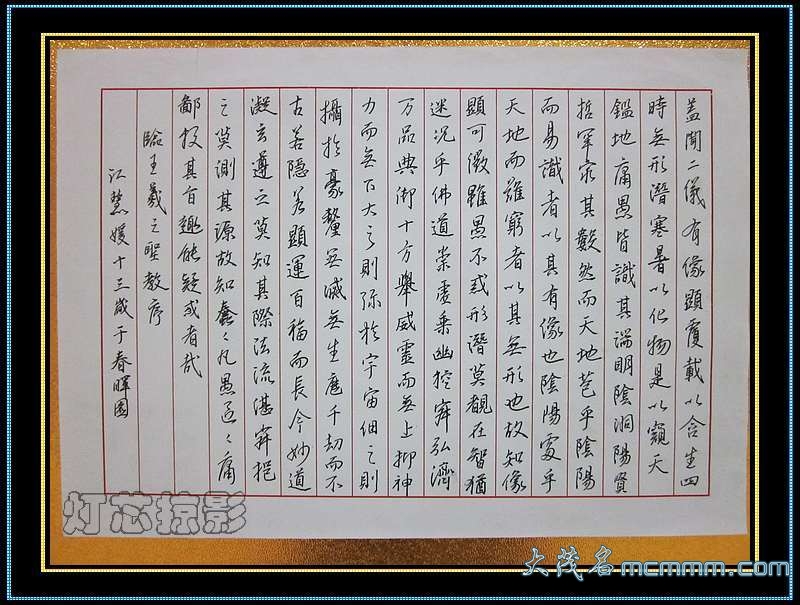 盖聞二儀有像顕覆載以含生四
時無形潛寒暑以化物是以窺天
鑑地庸愚皆識其端明陰洞陽賢
哲罕窮其數然而天地苞乎陰陽
而易識者以其有像也陰陽處乎
天地而難窮者以其無形也故知像
顕可徵雖愚不惑形潛莫覩在智猶
迷况乎佛道崇虛乗幽控寂弘濟
万品典御十方舉威靈而無上抑神
力而無下大之則弥於宇宙細之則
攝於豪釐無滅無生歷千劫而不
古若隐若顕運百福而長今妙道
凝玄遵之莫知其際法流湛寂挹
之莫測其源故知蠢々凡愚區々庸
鄙投其旨趣能疑或者哉
臨王羲之聖教序
江慧媛十三歲于春暉園
灯芯掠影
大茂名mcmmm.com